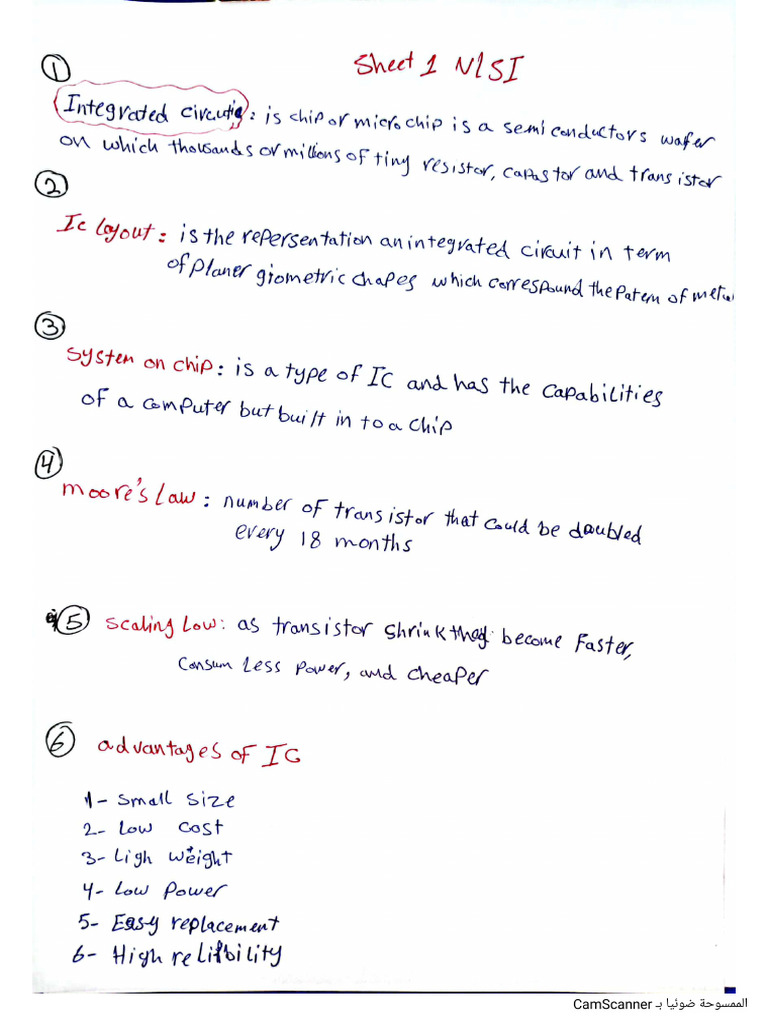 Sheet 1 VlSI
①
Integrated circuitie: is chip or micro chip is a semi conductors wafer
on which thousands or millions of tiny resistor, capastor and transistor
②
Ic layout: is the repersentation an integrated circuit in term
of planer giometric chapes which correspound the patern of metal
③
system on chip: is a type of IC and has the capabilities
of a computer but built in to a chip
④
moore's Law: number of transistor that could be doubled
every 18 months
⑤ scaling Low: as transistor shrink they become Faster,
Consum Less power, and cheaper
⑥ advantages of IC
1- small size
2- Low cost
3- Ligh weight
4- Low Power
5- Easy replacement
6- High relifbility
الممسوحة ضوئيا بـ CamScanner